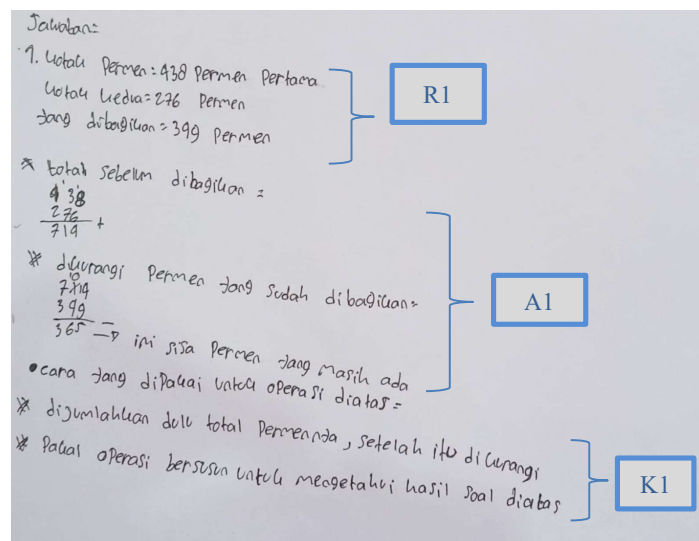 Jawaban=
1. Kotak Permen = 438 Permen Pertama
Kotak kedua = 276 Permen
yang dibagikan = 349 Permen
R1
* total sebelum dibagikan =
438
276 +
714
* dikurangi Permen yang sudah dibagikan=
714
349
365 => ini sisa Permen yang masih ada
A1
• cara yang dipakai untuk operasi diatas=
* dijumlahkan dulu total Permennya, setelah itu dikurangi
* Pakai operasi bersusun untuk mengetahui hasil soal diatas
K1